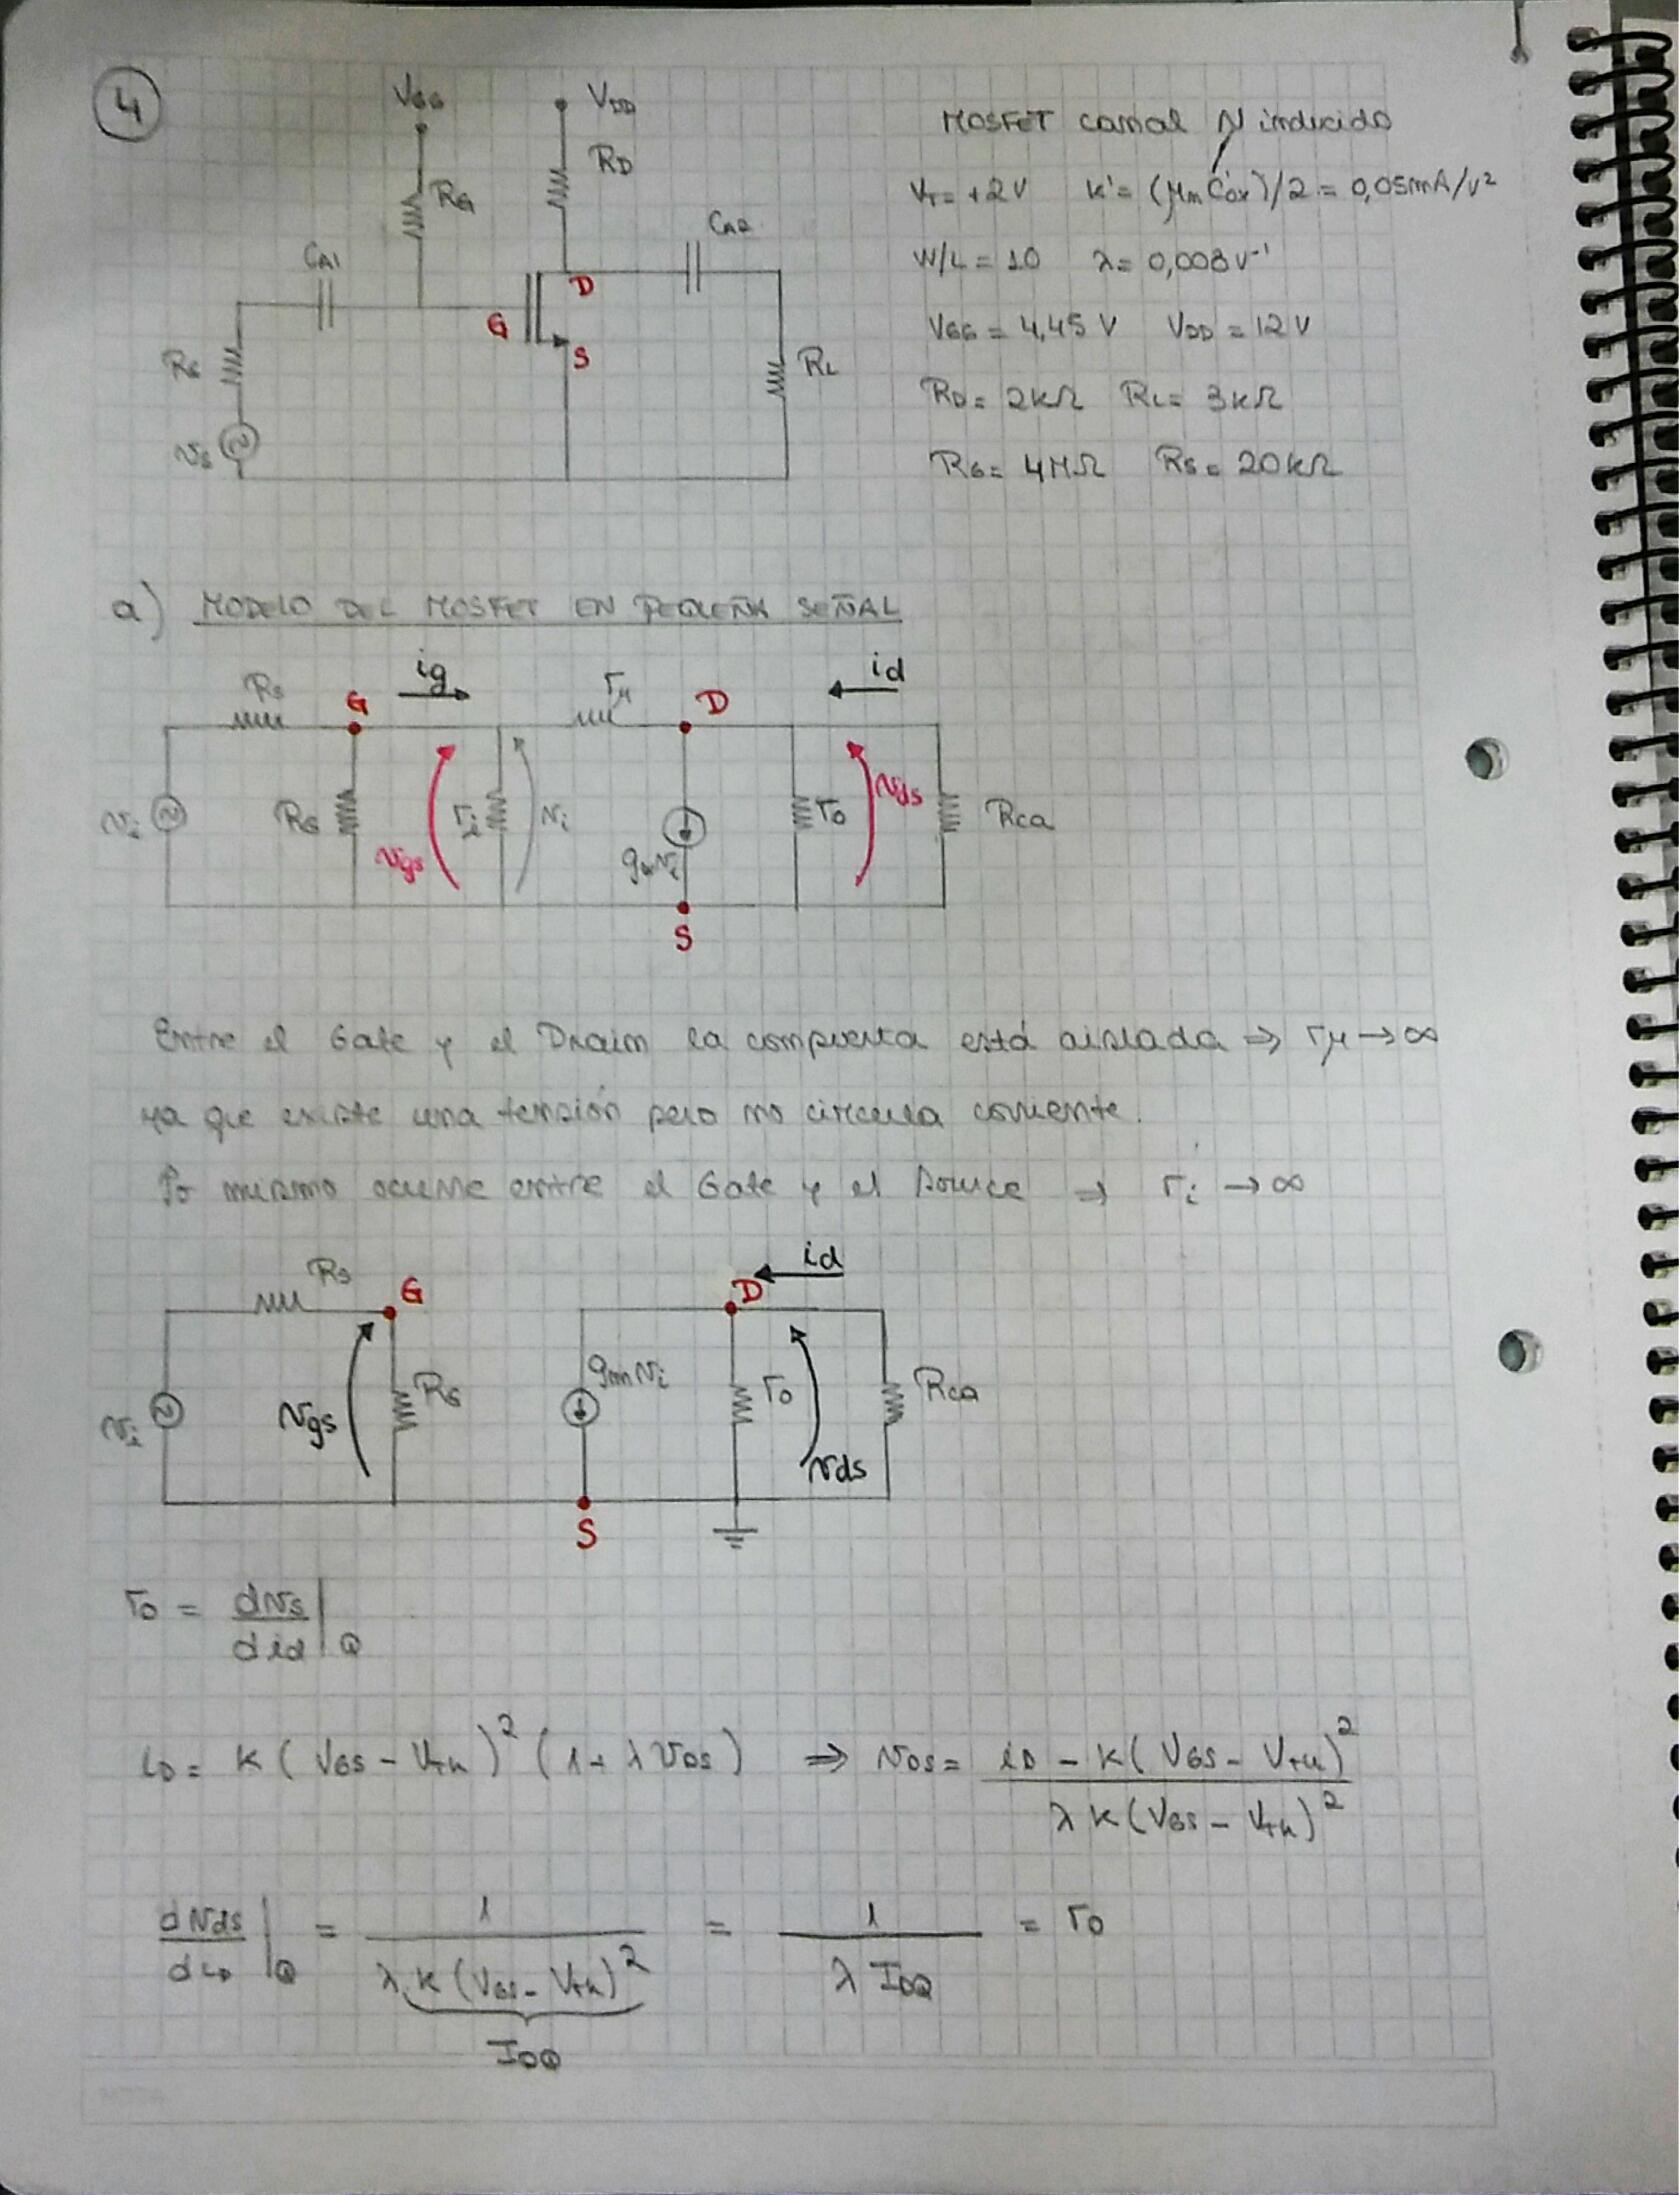 4
V_GG
V_DD
R_G
R_D
C_A1
C_A2
D
G
S
R_L
v_s
MOSFET canal N inducido
V_T = +2V K' = (μ_n C'ox)/2 = 0,05mA/V²
W/L = 10 λ = 0,008 V⁻¹
V_GG = 4,45 V V_DD = 12 V
R_D = 2kΩ R_L = 3kΩ
R_G = 4MΩ R_S = 20kΩ
a) MODELO DEL MOSFET EN PEQUEÑA SEÑAL
R_s
G
ig
r_μ
D
id
v_i
R_G
vgs
r_i
v_i
g_m v_i
r_o
vds
Rca
S
Entre el Gate y el Drain la compuerta está aislada ⇒ r_μ → ∞
ya que existe una tensión pero no circula corriente.
Lo mismo ocurre entre el Gate y el Source ⇒ r_i → ∞
R_s
G
D
id
v_i
vgs
R_G
g_m v_i
r_o
vds
Rca
S
r_o = dv_s / d id |_Q
i_D = K (V_GS - V_TH)² (1 + λ V_DS) ⇒ v_DS = (i_D - K (V_GS - V_TH)²) / (λ K (V_GS - V_TH)²)
dvds / di_D |_Q = 1 / (λ K (V_GS - V_TH)²) = 1 / (λ I_DQ) = r_o
I_DQ